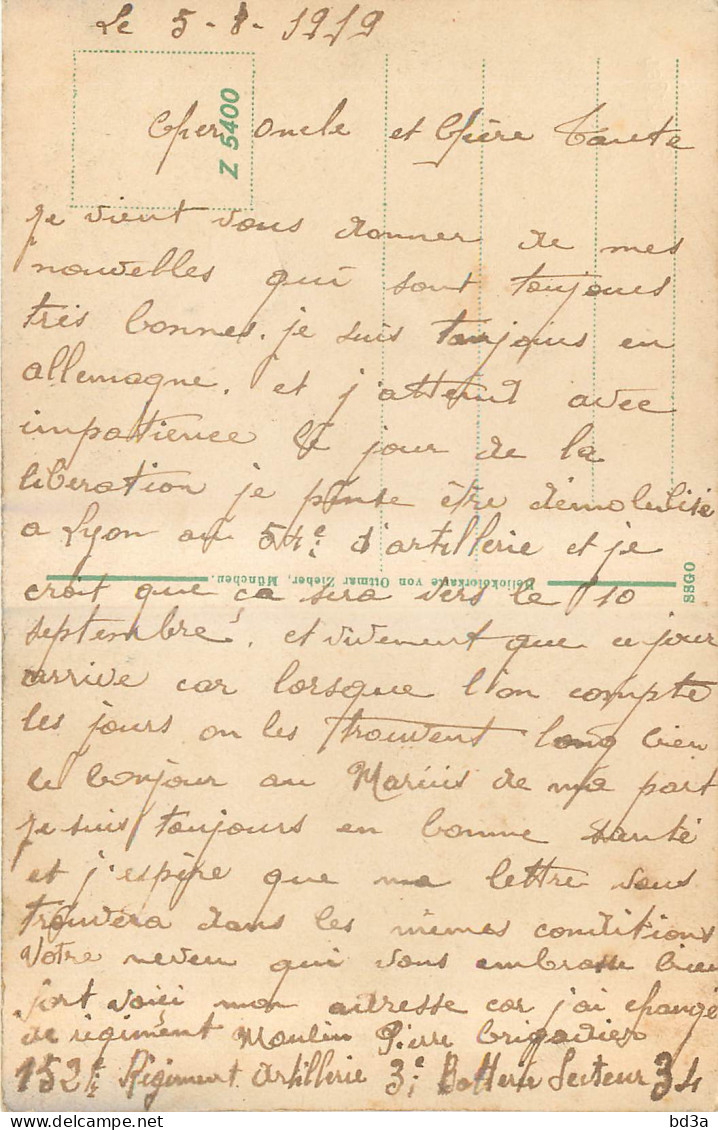 Le 5-8-1919
Cher Oncle et Chère Tante
Z 5400
je vient vous donner de mes
nouvelles qui sont toujours
très bonnes. je suis toujours en
allemagne. et j'attend avec
impatience le jour de la
libération je pense être démobilisé
a Lyon au 54e d'artillerie et je
Heliokolorkarte von Ottmar Zieher, München.
88GO
croit que ça sera vers le 10
septembre, et vivement que ce jour
arrive car lorsque l'on compte
les jours on les trouvent long bien
le bonjour au Marius de ma part
je suis toujours en bonne santé
et j'espère que ma lettre vous
trouvera dans les mêmes conditions
Votre neveu qui vous embrasse bien
fort voiçi mon adresse car j'ai changé
de régiment Moulin Pierre brigadier
152e Régiment Artillerie 3e Batterie Secteur 34
bd3a